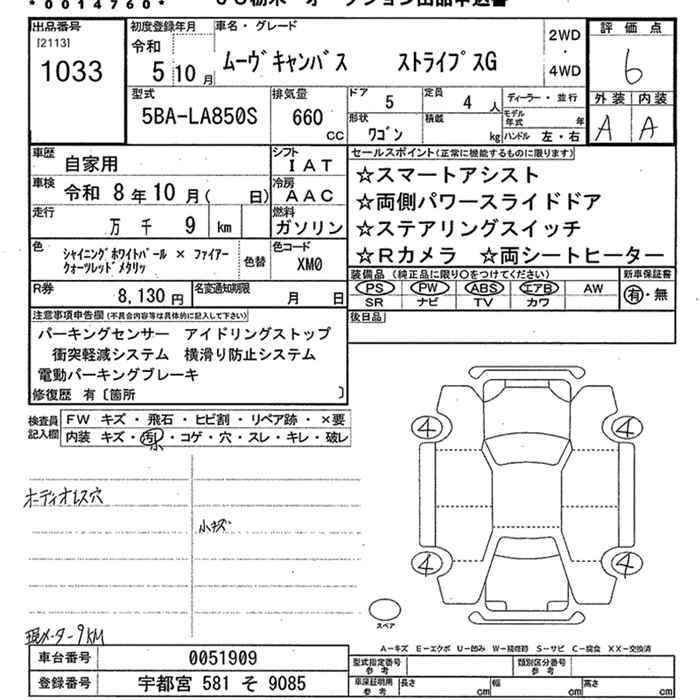 *0014760*
出品番号
[2113]
1033
初度登録年月
令和
5 10 月
車名・グレード
ムーヴキャンバス ストライプスG
2WD
・
4WD
評価点
6
外装 内装
A A
型式
5BA-LA850S
排気量
660
CC
ドア
5
定員
4 人
ディーラー・並行
形状
ワゴン
積載
kg
モデル年式 年
ハンドル 左・右
車歴
自家用
シフト
IAT
車検
令和 8年10月( 日)
冷房
AAC
走行
万 千 9 km
燃料
ガソリン
色
シャイニングホワイトパール × ファイアー
クォーツレッドメタリッ
色替
色コード
XM0
セールスポイント(正常に機能するものに限ります)
☆スマートアシスト
☆両側パワースライドドア
☆ステアリングスイッチ
☆Rカメラ ☆両シートヒーター
装備品 (純正品に限り○をつけてください)
PS PW ABS エアB AW
SR ナビ TV カワ
新車保証書
有・無
R券
8,130 円
名変通知期限
月 日
後日品
注意事項申告欄(不具合内容等は具体的に記入して下さい)
パーキングセンサー アイドリングストップ
衝突軽減システム 横滑り防止システム
電動パーキングブレーキ
修復歴 有〔箇所 〕
検査員
記入欄
FW キズ・飛石・ヒビ割・リペア跡・×要
内装 キズ・汚・コゲ・穴・スレ・キレ・破レ
小
ボディオレス穴
小キズ
4
4
4
4
スペア
現メーター9KM
A−キズ E−エクボ U−凹み W−補修跡 S−サビ C−腐食 XX−交換済
車台番号
0051909
登録番号
宇都宮 581 そ 9085
型式指定番号
参考
類別区分番号
参考
車庫証明用
参考
長さ cm
幅 cm
高さ cm